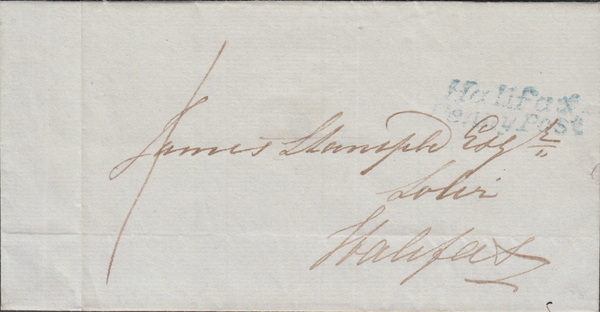 Halifax
Penny Post
1
James Stansfeld Esqr
Solir
Halifax